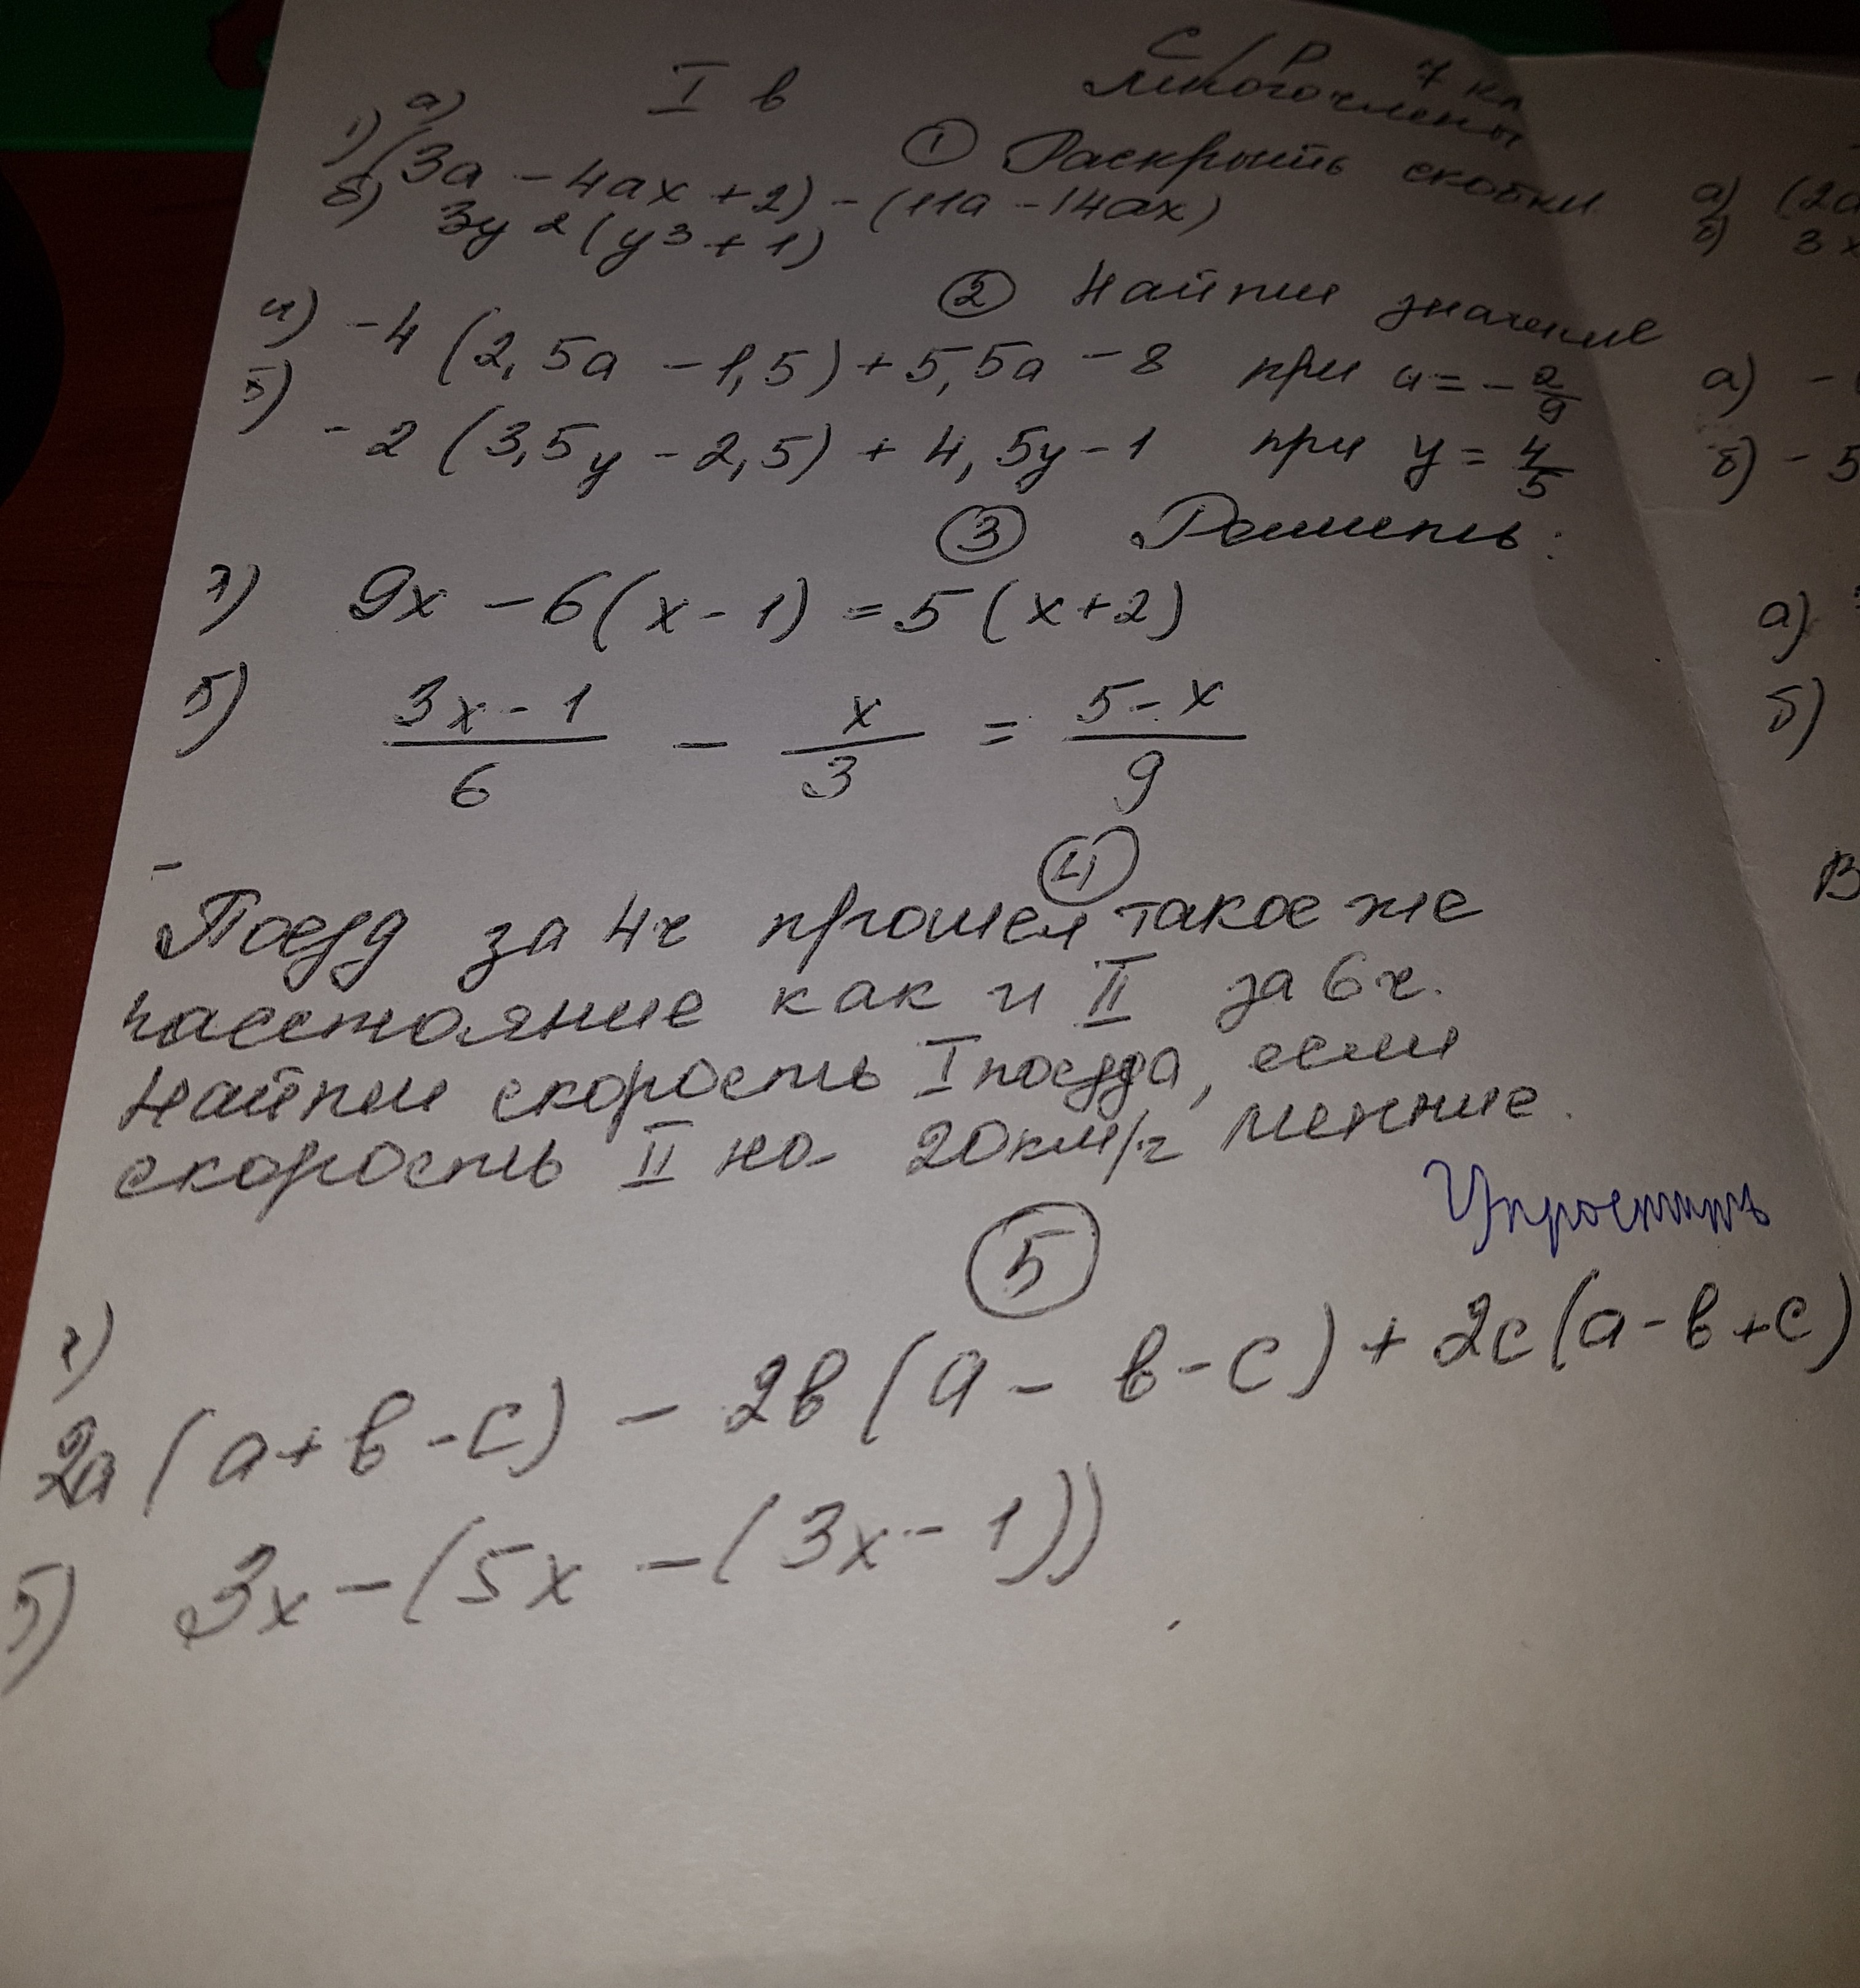 С/Р 7 кл
I в Многочлены
① Раскрыть скобки
1) а) (3а - 4ах + 2) - (11а - 14ах)
б) 3у²(у³ + 1)
② Найти значение
а) -4 (2,5а - 1,5) + 5,5а - 8 при а = -2/9
б) -2 (3,5у - 2,5) + 4,5у - 1 при у = 4/5
③ Решить:
а) 9х - 6(х - 1) = 5(х+2)
б) (3х - 1)/6 - х/3 = (5 - х)/9
④
Поезд за 4ч прошел такое же
расстояние как и II за 6ч.
Найти скорость I поезда, если
скорость II на 20км/ч меньше.
Упростить
⑤
а)
2а(а+в-с) - 2в(а - в - с) + 2с(а-в+с)
б) 3х - (5х - (3х - 1))
а) (2а
б) 3х
а) -
б) - 5
а)
б)
В